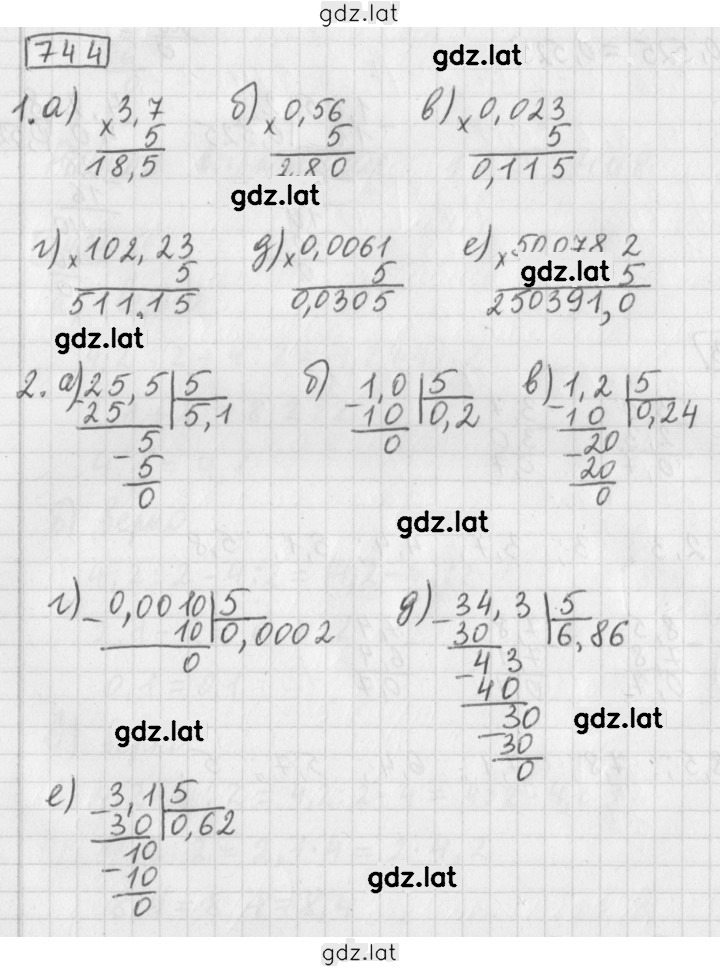 gdz.lat
744
gdz.lat
1. а) × 3,7 б) × 0,56 в) × 0,023
5 5 5
18,5 2,80 0,115
gdz.lat
г) × 102,23 д) × 0,0061 е) ×
5 5 gdz.lat 5
511,15 0,0305 250391,0
gdz.lat
2. а) 25,5 | 5 б) 1,0 | 5 в) 1,2 | 5
- 25 5,1 - 10 0,2 - 10 0,24
5 0 - 20
- 5 20
0 0
gdz.lat
г) - 0,0010 | 5 д) - 34,3 | 5
10 0,0002 30 6,86
0 - 43
40
gdz.lat - 30 gdz.lat
30
0
е) - 3,1 | 5
30 0,62
10
- 10 gdz.lat
0
gdz.lat